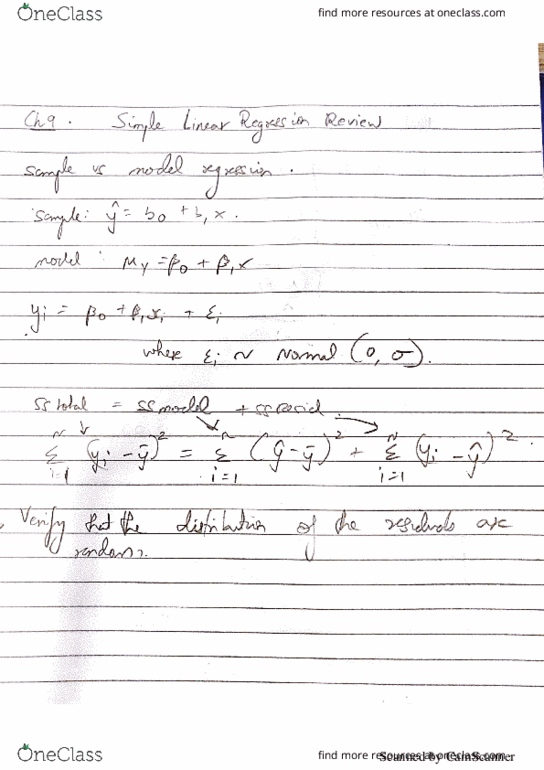 OneClass
find more resources at oneclass.com
Ch 9. Simple Linear Regression Review
sample vs model regression.
sample: ŷ = b₀ + b₁x.
model: μy = β₀ + β₁x
yi = β₀ + β₁xi + εi
where εi ~ Normal (0, σ).
SS total = SS model + SS resid.
N Σ i=1 (yi - ȳ)² = N Σ i=1 (ŷ - ȳ)² + N Σ i=1 (yi - ŷ)².
Verify that the distribution of the residuals are
random.
OneClass
find more resources at oneclass.com
Scanned by CamScanner